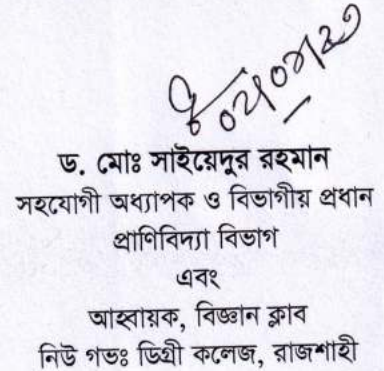 ড. মোঃ সাইয়েদুর রহমান
সহযোগী অধ্যাপক ও বিভাগীয় প্রধান
প্রাণিবিদ্যা বিভাগ
এবং
আহ্বায়ক, বিজ্ঞান ক্লাব
নিউ গভঃ ডিগ্রী কলেজ, রাজশাহী